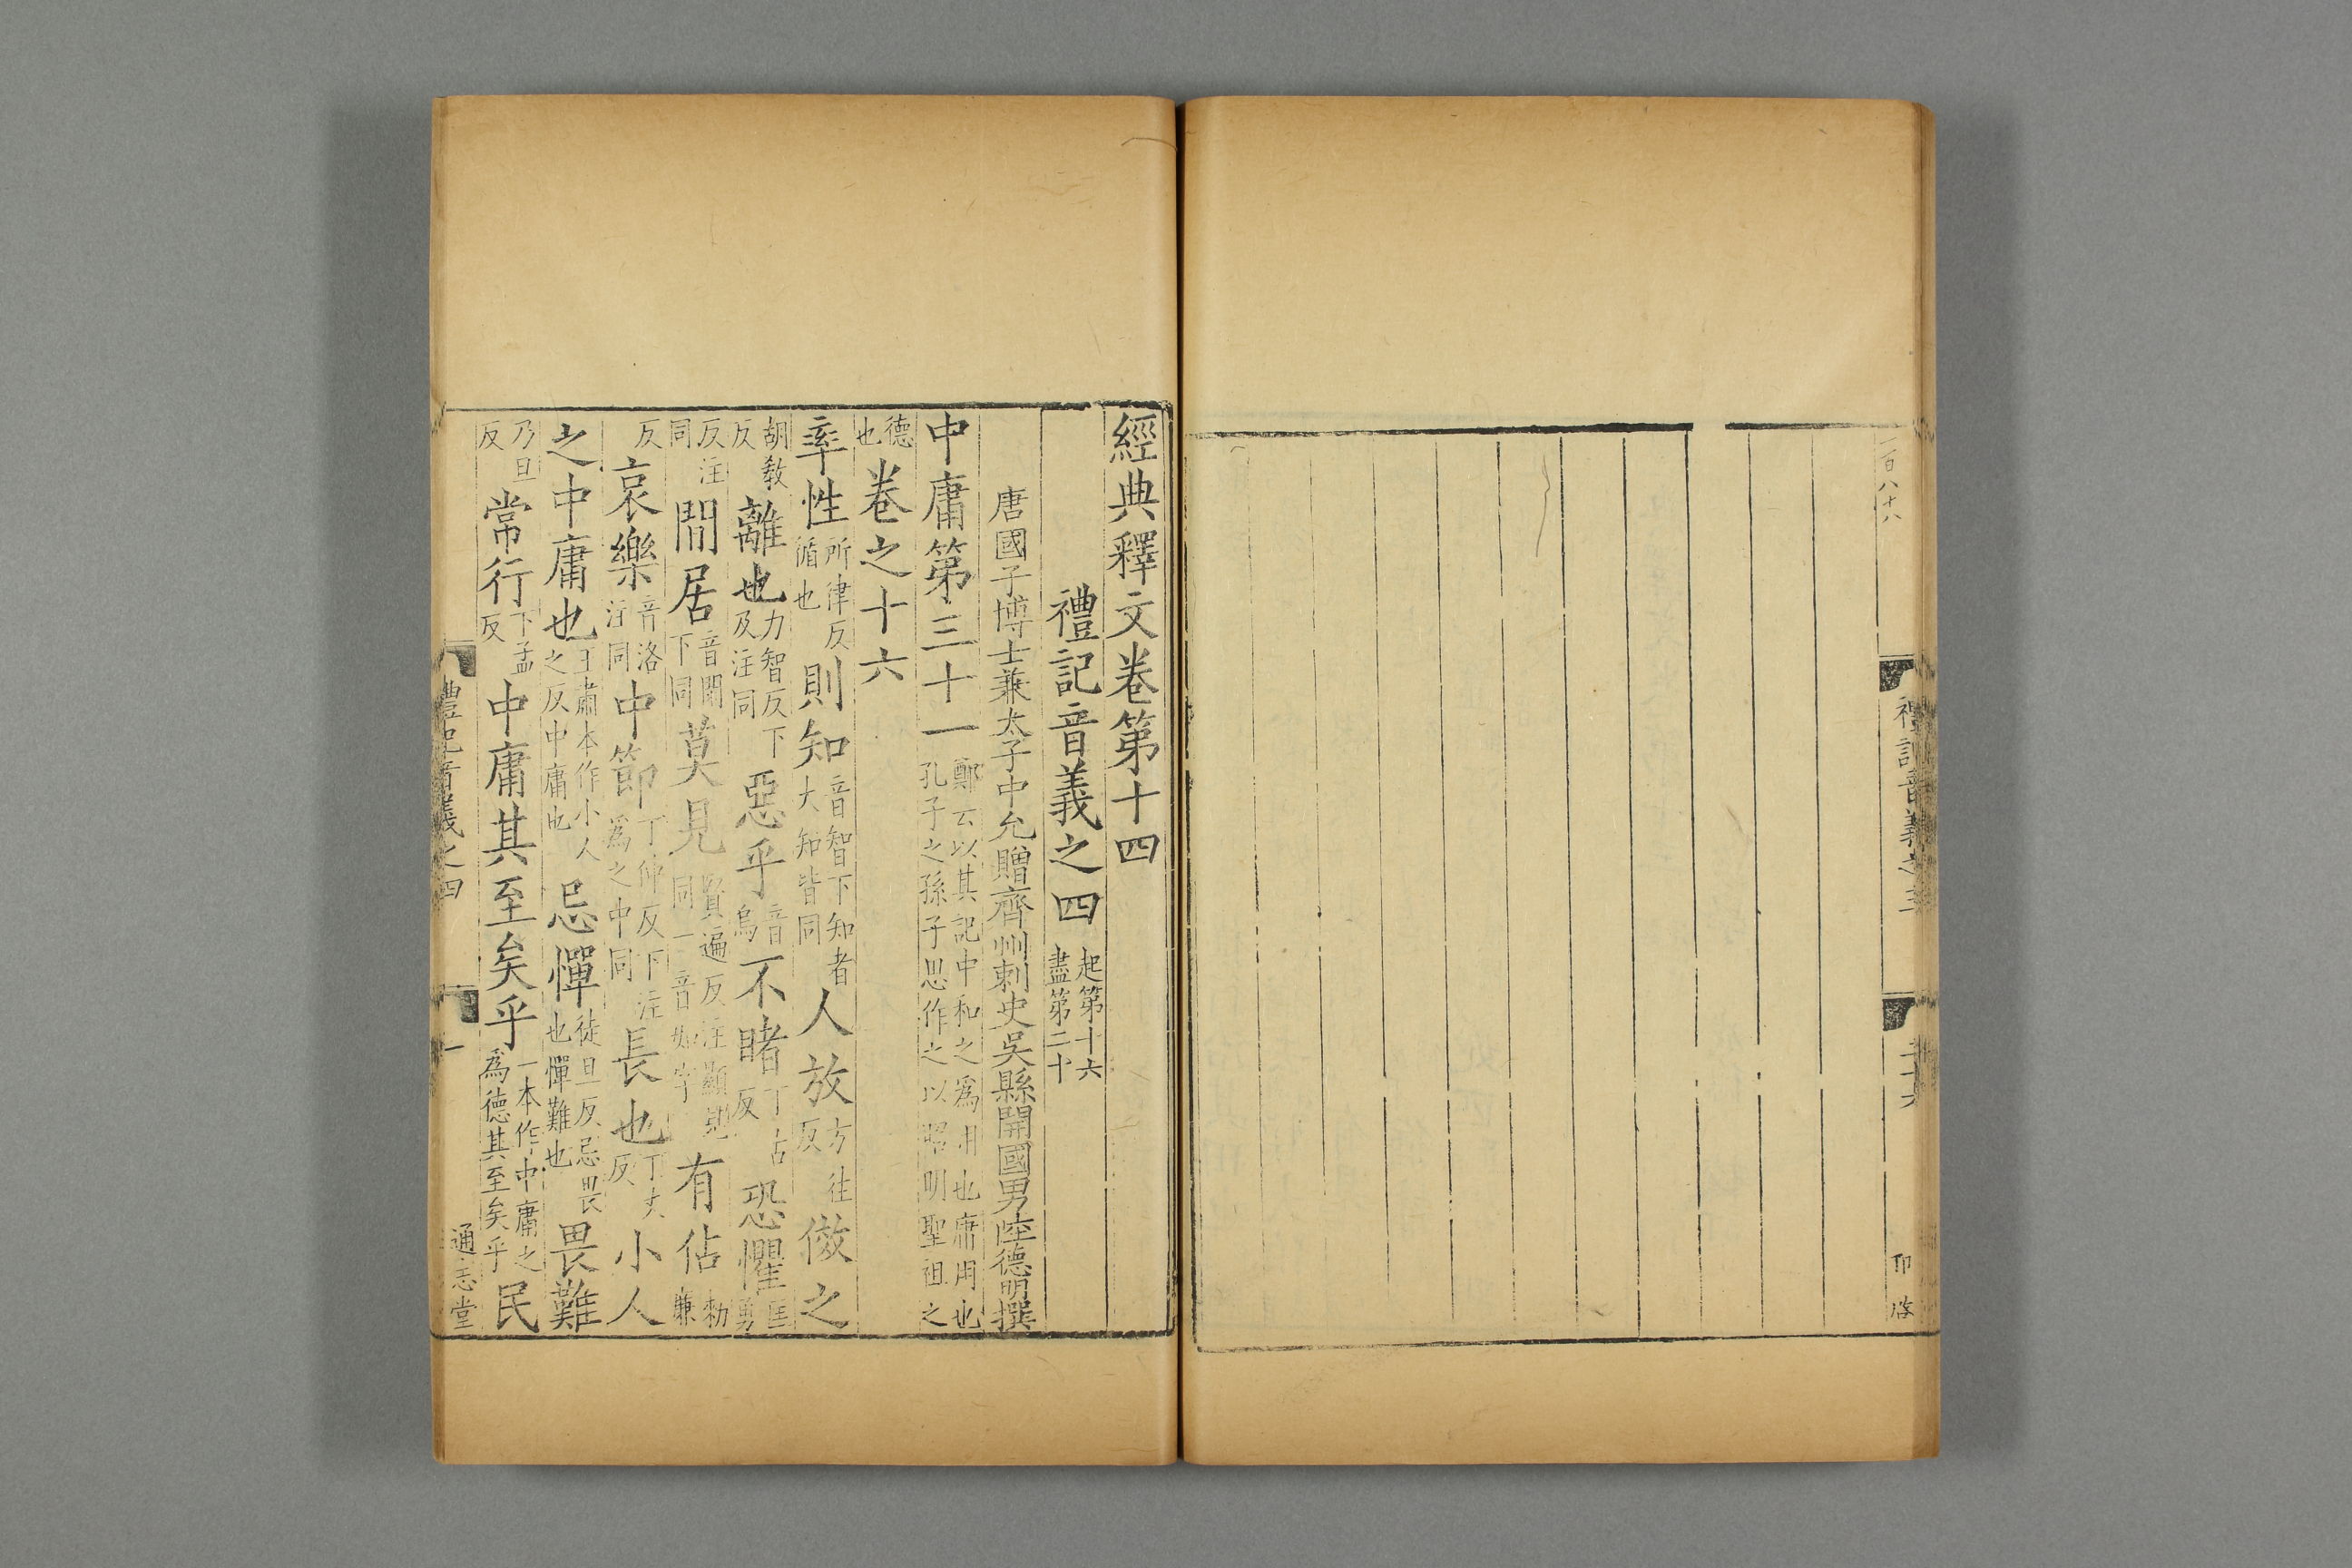 一百八十八
禮記音義之三
二十六
卬 啓
經典釋文卷第十四
禮記音義之四 起第十六 盡第二十
唐國子博士兼太子中允贈齊州刺史吳縣開國男陸德明撰
中庸第三十一 鄭云以其記中和之爲用也庸用也 孔子之孫子思作之以昭明聖祖之
德也 卷之十六
率性 所律反循也 則知 音智下知者大知皆同 人放 方往反 傚之
胡教反 離也 力智反下及注同 惡乎 音烏 不睹 丁古反 恐懼 匡勇
反注同 閒居 音閑下同 莫見 賢遍反注顯見同一音如字 有佔 勑廉
反 哀樂 音洛注同 中節 丁仲反下注爲之中同 長也 丁丈反 小人
之中庸也 王肅本作小人之反中庸也 忌憚 徒旦反忌畏也憚難也 畏難
乃旦反 常行 下孟反 中庸其至矣乎 一本作中庸之爲德其至矣乎 民
禮記音義之四
一
通志堂